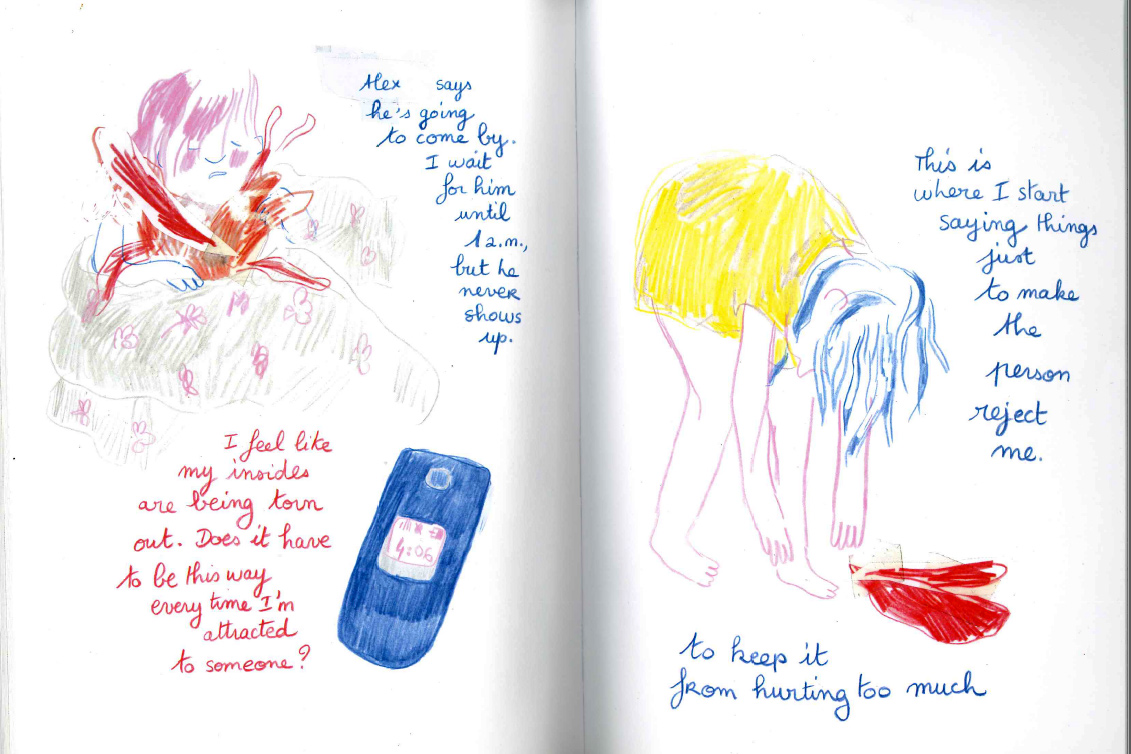 Alex says
he's going
to come by.
I wait
for him
until
1 a.m.,
but he
never
shows
up.
I feel like
my insides
are being torn
out. Does it have
to be this way
every time I'm
attracted
to someone?
4:06
This is
where I start
saying things
just
to make
the
person
reject
me.
to keep it
from hurting too much